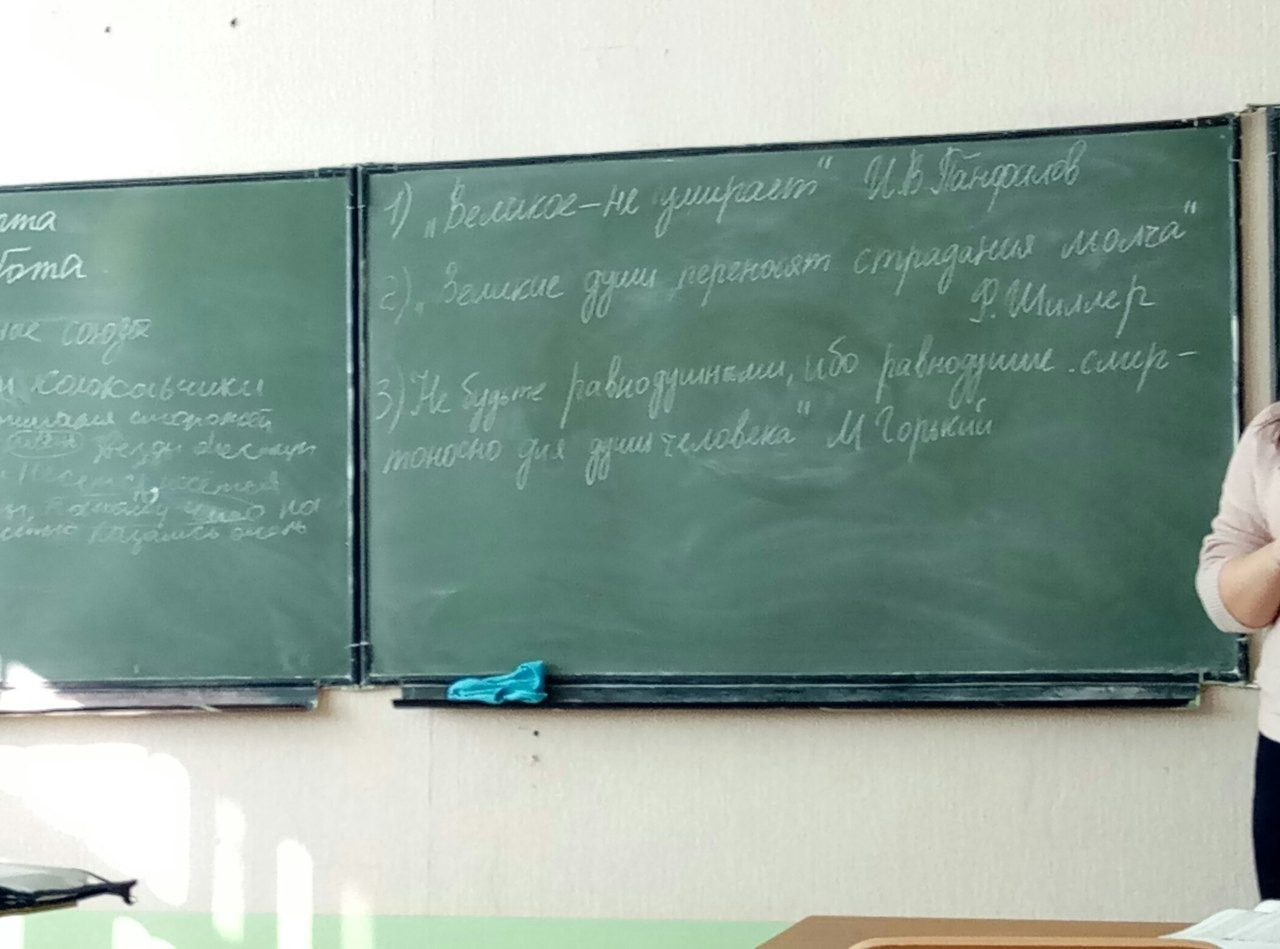 ата
бота
ные союзы
и колокольчики
потому что на
казались очень
1) „Великое – не умирает" И.В.Панфилов
2) „Великие души переносят страдания молча"
Ф. Шиллер
3) Не будьте равнодушными, ибо равнодушие смер-
тоносно для души человека" М Горький